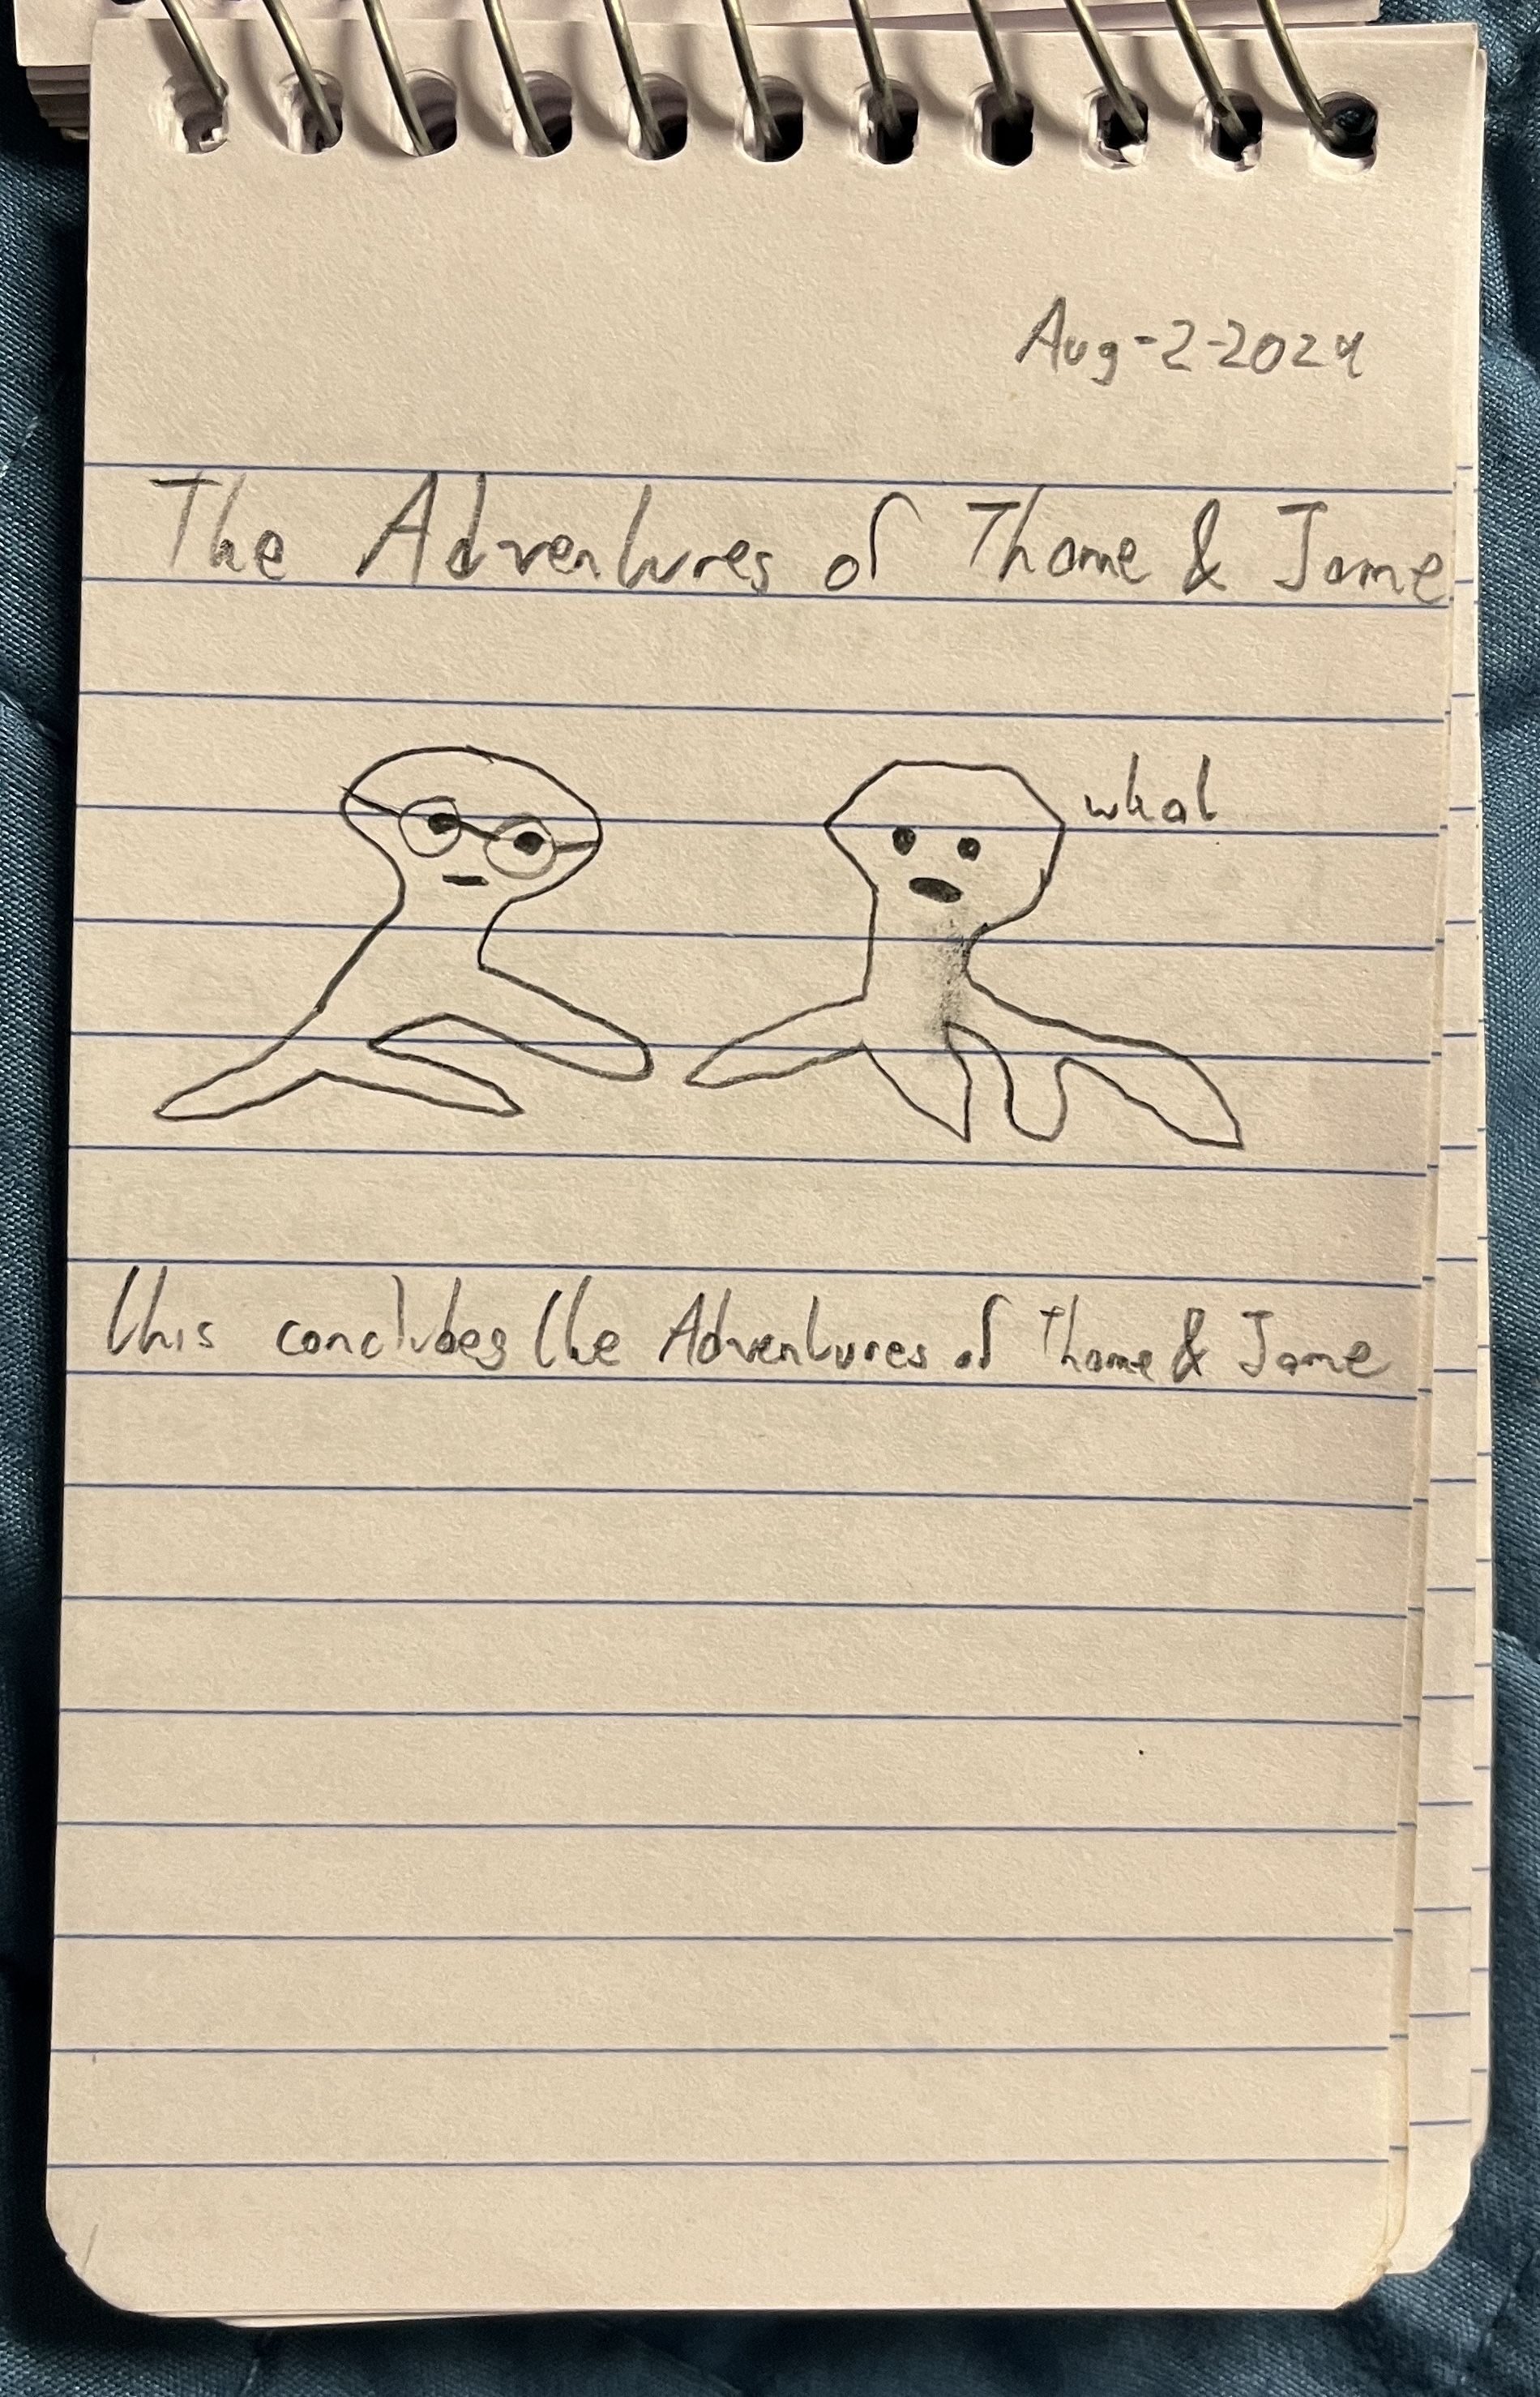 Aug-2-2024
The Adventures of Thome & Jome
what
this concludes the Adventures of Thome & Jome